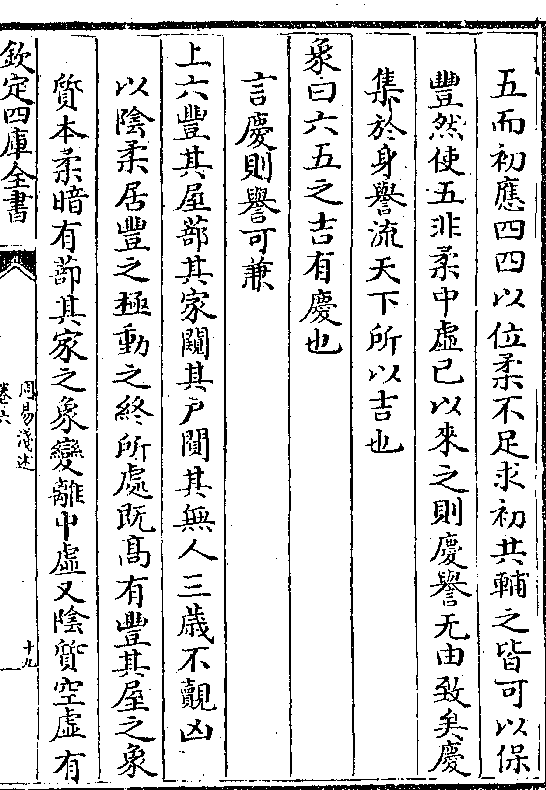 五而初應四四以位柔不足求初共輔之皆可以保
豐然使五非柔中虛已以來之則慶譽无由致矣慶
集於身譽流天下所以吉也
象曰六五之吉有慶也
言慶則譽可兼
上六豐其屋蔀其家闚其戶闃其無人三歲不覿凶
以陰柔居豐之極動之終所處既高有豐其屋之象
質本柔暗有蔀其家之象變離中虛又陰質空虛有
欽定四庫全書
周易淺述
卷六
十九